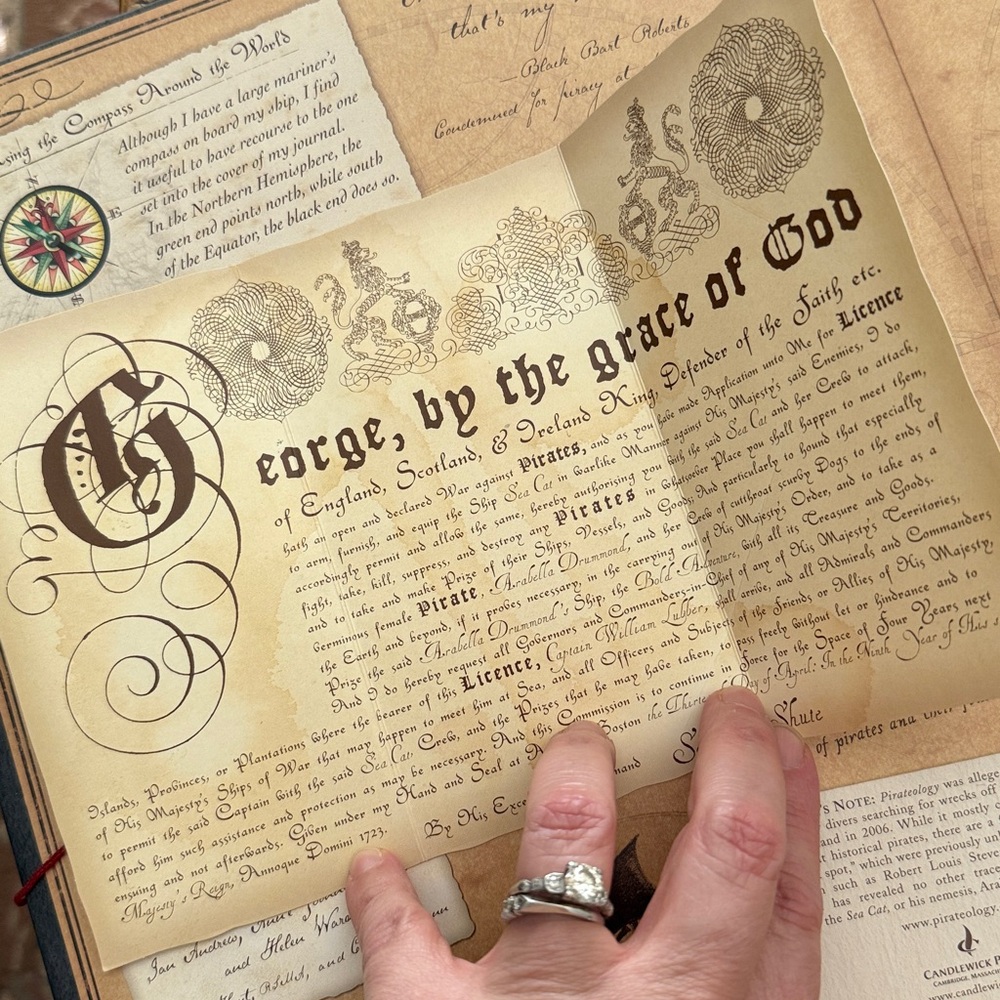 that's my
—Black Bart Roberts
Condemned for piracy at
sing the Compass Around the World
Although I have a large mariner's
compass on board my ship, I find
it useful to have recourse to the one
set into the cover of my journal.
In the Northern Hemisphere, the
green end points north, while south
of the Equator, the black end does so.
N
E
S
George, by the grace of God
of England, Scotland, & Ireland King, Defender of the Faith etc.
hath an open and declared War against Pirates, and as you have made Application unto Me for Licence
to arm, furnish, and equip the Ship Sea Cat in warlike Manner against His Majesty's said Enemies, I do
accordingly permit and allow the same, hereby authorising you with the said Sea Cat and her Crew to attack,
fight, take, kill, suppress, and destroy any Pirates in whatsoever Place you shall happen to meet them,
and to take and make Prize of their Ships, Vessels, and Goods; And particularly to hound that especially
verminous female Pirate, Arabella Drummond, and her Crew of cutthroat scurvy Dogs to the ends of
the Earth and beyond, if it proves necessary, in the carrying out of His Majesty's Order, and to take as a
Prize the said Arabella Drummond's Ship, the Bold Adventure, with all its Treasure and Goods.
And I do hereby request all Governors and Commanders-in-Chief of any of His Majesty's Territories,
Islands, Provinces, or Plantations where the bearer of this Licence, Captain William Lubber, shall arrive, and all Admirals and Commanders
of His Majesty's Ships of War that may happen to meet him at Sea, and all Officers and Subjects of the Friends or Allies of His Majesty,
to permit the said Captain with the said Sea Cat Crew, and the Prizes that he may have taken, to pass freely without let or hindrance and to
afford him such assistance and protection as may be necessary. And this Commission is to continue in Force for the Space of Four Years next
ensuing and not afterwards. Given under my Hand and Seal at Boston the Day of April: In the Ninth Year of His
Majesty's Reign, Annoque Domini 1723.
By His
Shute
of pirates and their
Ian Andrew, Anne
and Helen
and
's Note: Pirateology was
divers searching for wrecks off
and in 2006. While it mostly
historical pirates, there are a
spot," which were previously
such as Robert Louis
has revealed no other
the Sea Cat, or his nemesis,
www.pirateology
CANDLEWICK
CAMBRIDGE,